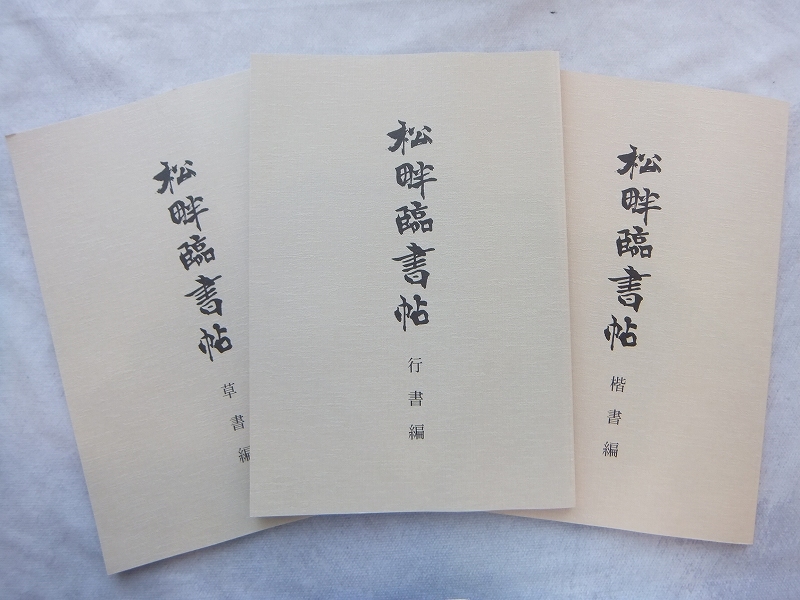 松畔臨書帖
草書編
松畔臨書帖
行書編
松畔臨書帖
楷書編